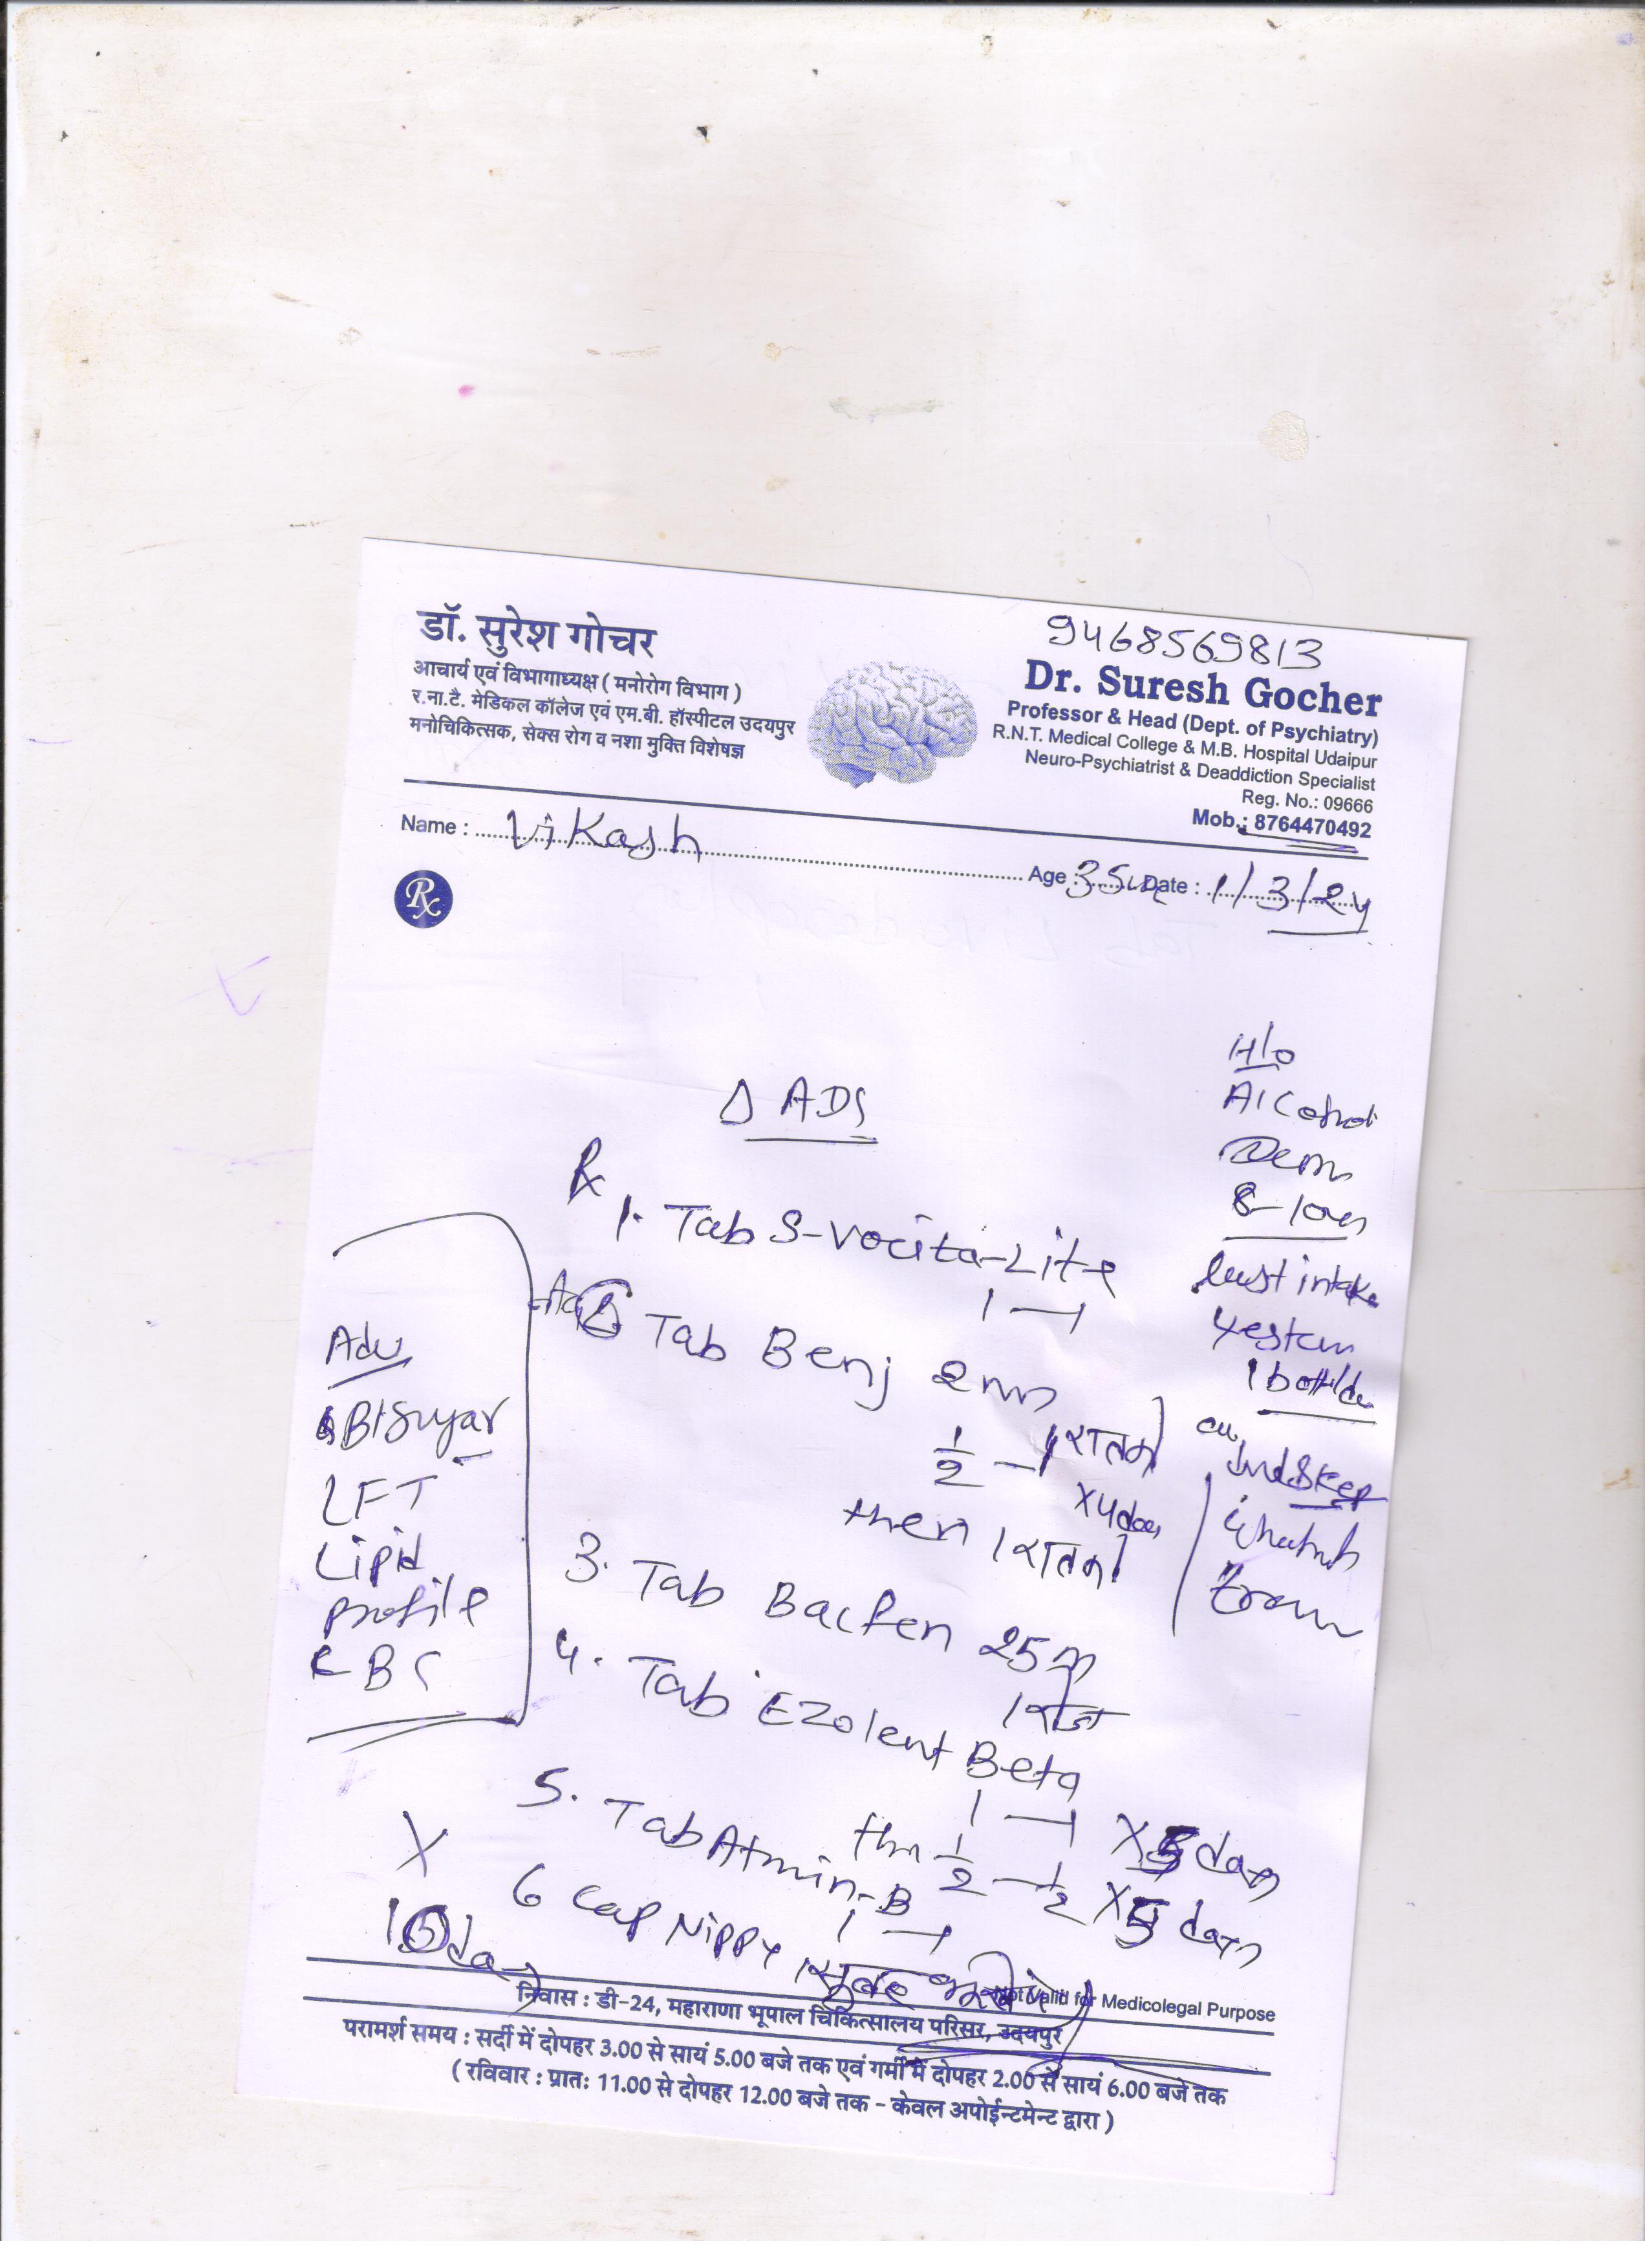 डॉ. सुरेश गोचर
आचार्य एवं विभागाध्यक्ष ( मनोरोग विभाग )
र.ना.टै. मेडिकल कॉलेज एवं एम.बी. हॉस्पीटल उदयपुर
मनोचिकित्सक, सेक्स रोग व नशा मुक्ति विशेषज्ञ
9468569813
Dr. Suresh Gocher
Professor & Head (Dept. of Psychiatry)
R.N.T. Medical College & M.B. Hospital Udaipur
Neuro-Psychiatrist & Deaddiction Specialist
Reg. No.: 09666
Mob.: 8764470492
Name : Vikash
Age : Date : 1/3/24
Rx
H/o
Alcohol
8-10
last intake
1
Δ ADS
Rx
1. Tab S-Vocita-Lite
1 — 1
2 Tab Benj 2
1/2 — 1 रातको
x4
then 1 रातको
3. Tab Bacfen 25
1
4. Tab Ezolent Beta
1 — 1 X 5 days
1/2 — 1/2 X 5 days
5. Tab Atmin-B
1 — 1
6 Cap Nippy 1
Adv
Bl Sugar
LFT
Lipid
Profile
CBC
X
Not Valid for Medicolegal Purpose
निवास : डी-24, महाराणा भूपाल चिकित्सालय परिसर, उदयपुर
परामर्श समय : सर्दी में दोपहर 3.00 से सायं 5.00 बजे तक एवं गर्मी में दोपहर 2.00 से सायं 6.00 बजे तक
( रविवार : प्रातः 11.00 से दोपहर 12.00 बजे तक - केवल अपोईन्टमेन्ट द्वारा )